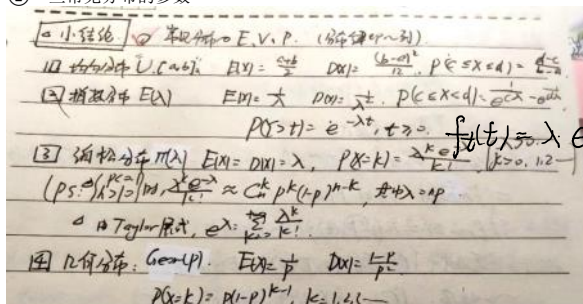 ② 三常见分布的参数
小结论 常见分布の E、V、P.
① 均匀分布 U[a,b]: E(X)=\frac{a+b}{2} D(X)=\frac{(b-a)^2}{12}, P(c≤X≤d)=\frac{d-c}{b-a}
② 指数分布 E(λ) E(X)=\frac{1}{λ} D(X)=\frac{1}{λ^2} P(c≤X≤d)=
P(Y>t)=e^{-λt}, t≥0.
③ 泊松分布 π(λ) E(X)=D(X)=λ, P(X=k)=\frac{λ^k e^{-λ}}{k!} k≥0, 1, 2…
\frac{λ^k e^{-λ}}{k!} ≈ C_n^k p^k(1-p)^{n-k}, 其中λ=np
△ 由Taylor展式, e^λ=\sum \frac{λ^k}{k!}.
④ 几何分布: Geo(p). E(X)=\frac{1}{p} D(X)=\frac{1-p}{p^2}
P(X=k)=p(1-p)^{k-1}, k=1,2,3…